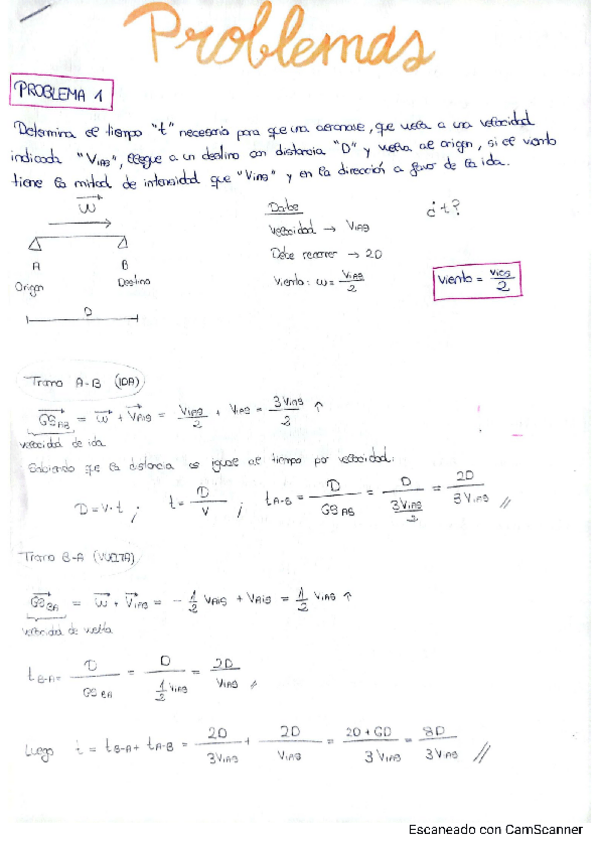 Problemas
PROBLEMA 1
Determina el tiempo "t" necesario para que una aeronave, que vuela a una velocidad
indicada "VIAS", llegue a un destino con distancia "D" y vuelva al origen, si el viento
tiene la mitad de intensidad que "VIAS" y en la dirección a favor de la ida.
W
Datos
¿t?
Velocidad → VIAS
Debe recorrer → 2D
Viento: w = VIAS/2
Viento = VIAS/2
A B
Origen Destino
D
Tramo A-B (IDA)
GSAB = w + VAIS = VIAS/2 + VIAS = 3VIAS/2 ↑
velocidad de ida
Sabiendo que la distancia es igual al tiempo por velocidad:
D = V·t ; t = D/V ; tA-B = D/GSAB = D/(3VIAS/2) = 2D/3VIAS //
Tramo B-A (VUELTA)
GSBA = w + VIAS = - 1/2 VAIS + VAIS = 1/2 VIAS ↑
velocidad de vuelta
tB-A = D/GSBA = D/(1/2 VIAS) = 2D/VIAS //
Luego t = tB-A + tA-B = 2D/3VIAS + 2D/VIAS = 2D + 6D/3VIAS = 8D/3VIAS //
Escaneado con CamScanner